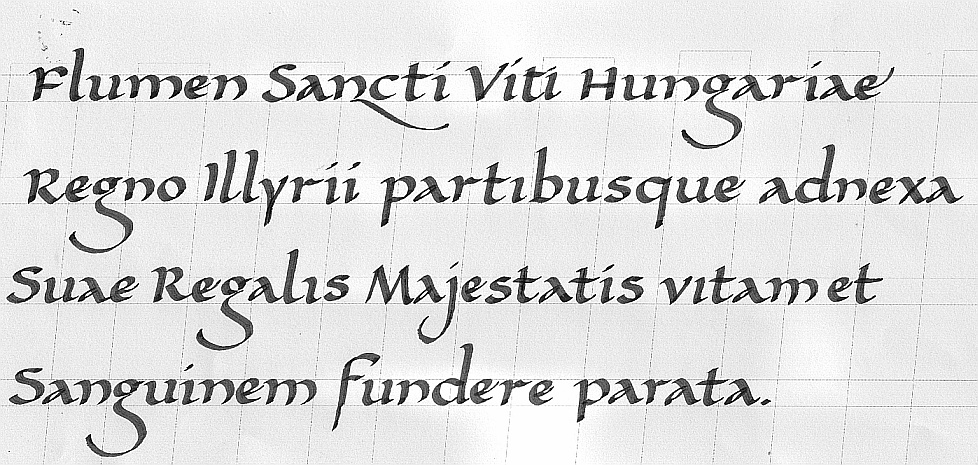 Flumen Sancti Viti Hungariae
Regno Illyrii partibusque adnexa
Suae Regalis Majestatis vitam et
Sanguinem fundere parata.